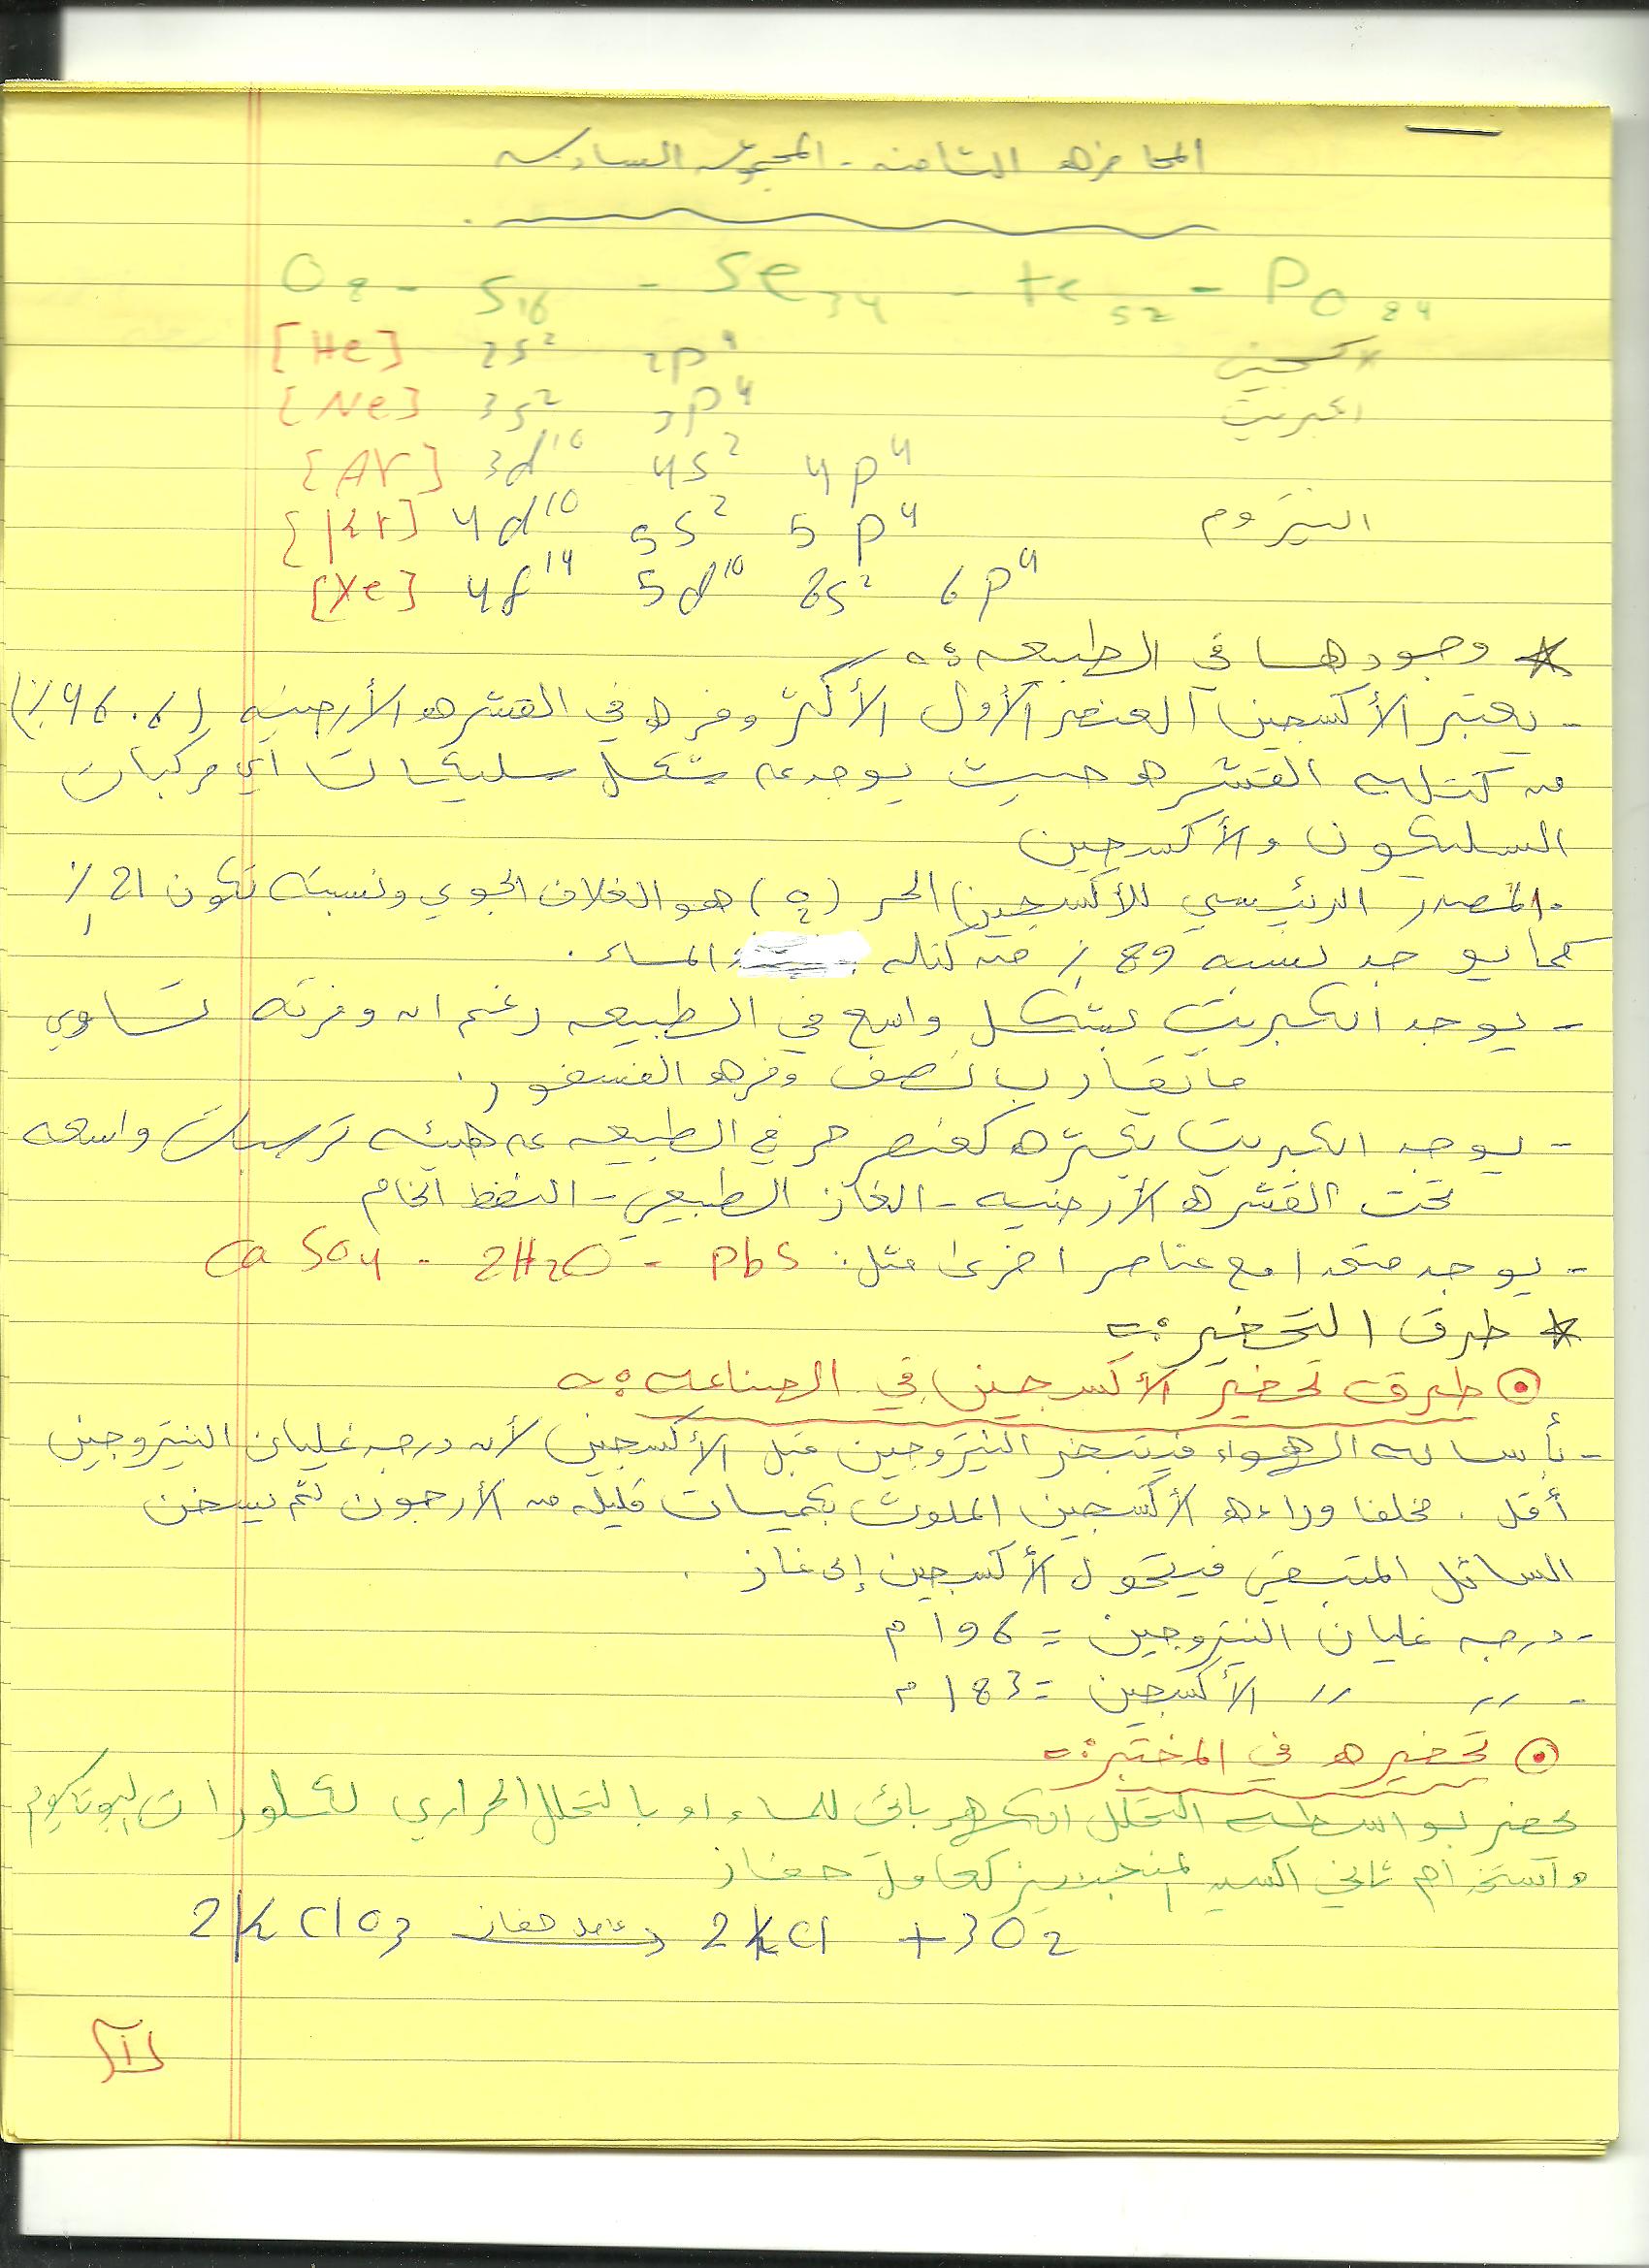 المحاضره الثامنه - المجموعه السادسه
O8 - S16 - Se34 - te52 - Po84
[He] 2s² 2p⁴ الاكسجين
[Ne] 3s² 3p⁴ الكبريت
[Ar] 3d¹⁰ 4s² 4p⁴
[Kr] 4d¹⁰ 5s² 5p⁴
[Xe] 4f¹⁴ 5d¹⁰ 6s² 6p⁴
* وجودها في الطبيعه :-
- يعتبر الأكسجين العنصر الأول الأكثر وفره في القشره الأرضيه (46.6%)
من كتله القشره حيث يوجد على شكل سليكات أي مركبات
السليكون والأكسجين
- المصدر الرئيسي للأكسجين الحر (O2) هو الغلاف الجوي ونسبته تكون 21%
كما يوجد بنسبه 89% من كتله الماء .
- يوجد الكبريت بشكل واسع في الطبيعه رغم ان وفرته تساوي
مايقارب نصف وفره الفسفور .
- يوجد الكبريت بكثره كعنصر حر في الطبيعه على هيئه ترسبات واسعه
تحت القشره الأرضيه - الغاز الطبيعي - النفط الخام
- يوجد متحدا مع عناصر اخرى مثل : CaSO4 . 2H2O - PbS
* طرق التحضير :-
⊙ طرق تحضير الأكسجين في الصناعه :-
- بأساله الهواء فيتبخر النيتروجين قبل الأكسجين لأن درجه غليان النيتروجين
أقل . مخلفا وراءه الأكسجين الملوث بكميات قليله من الأرجون ثم يسخن
السائل المتبقي فيتحول الأكسجين إلى غاز .
- درجه غليان النيتروجين = 196 م
- 〃 〃 الأكسجين = 183 م
⊙ تحضيره في المختبر :-
يحضر بواسطه التحلل الكهربائي للماء او بالتحلل الحراري لكلورات البوتاسيوم
واستخدام ثاني اكسيد المنجنيز كعامل حفاز
2KClO3 عامل حفاز → 2KCl + 3O2
1